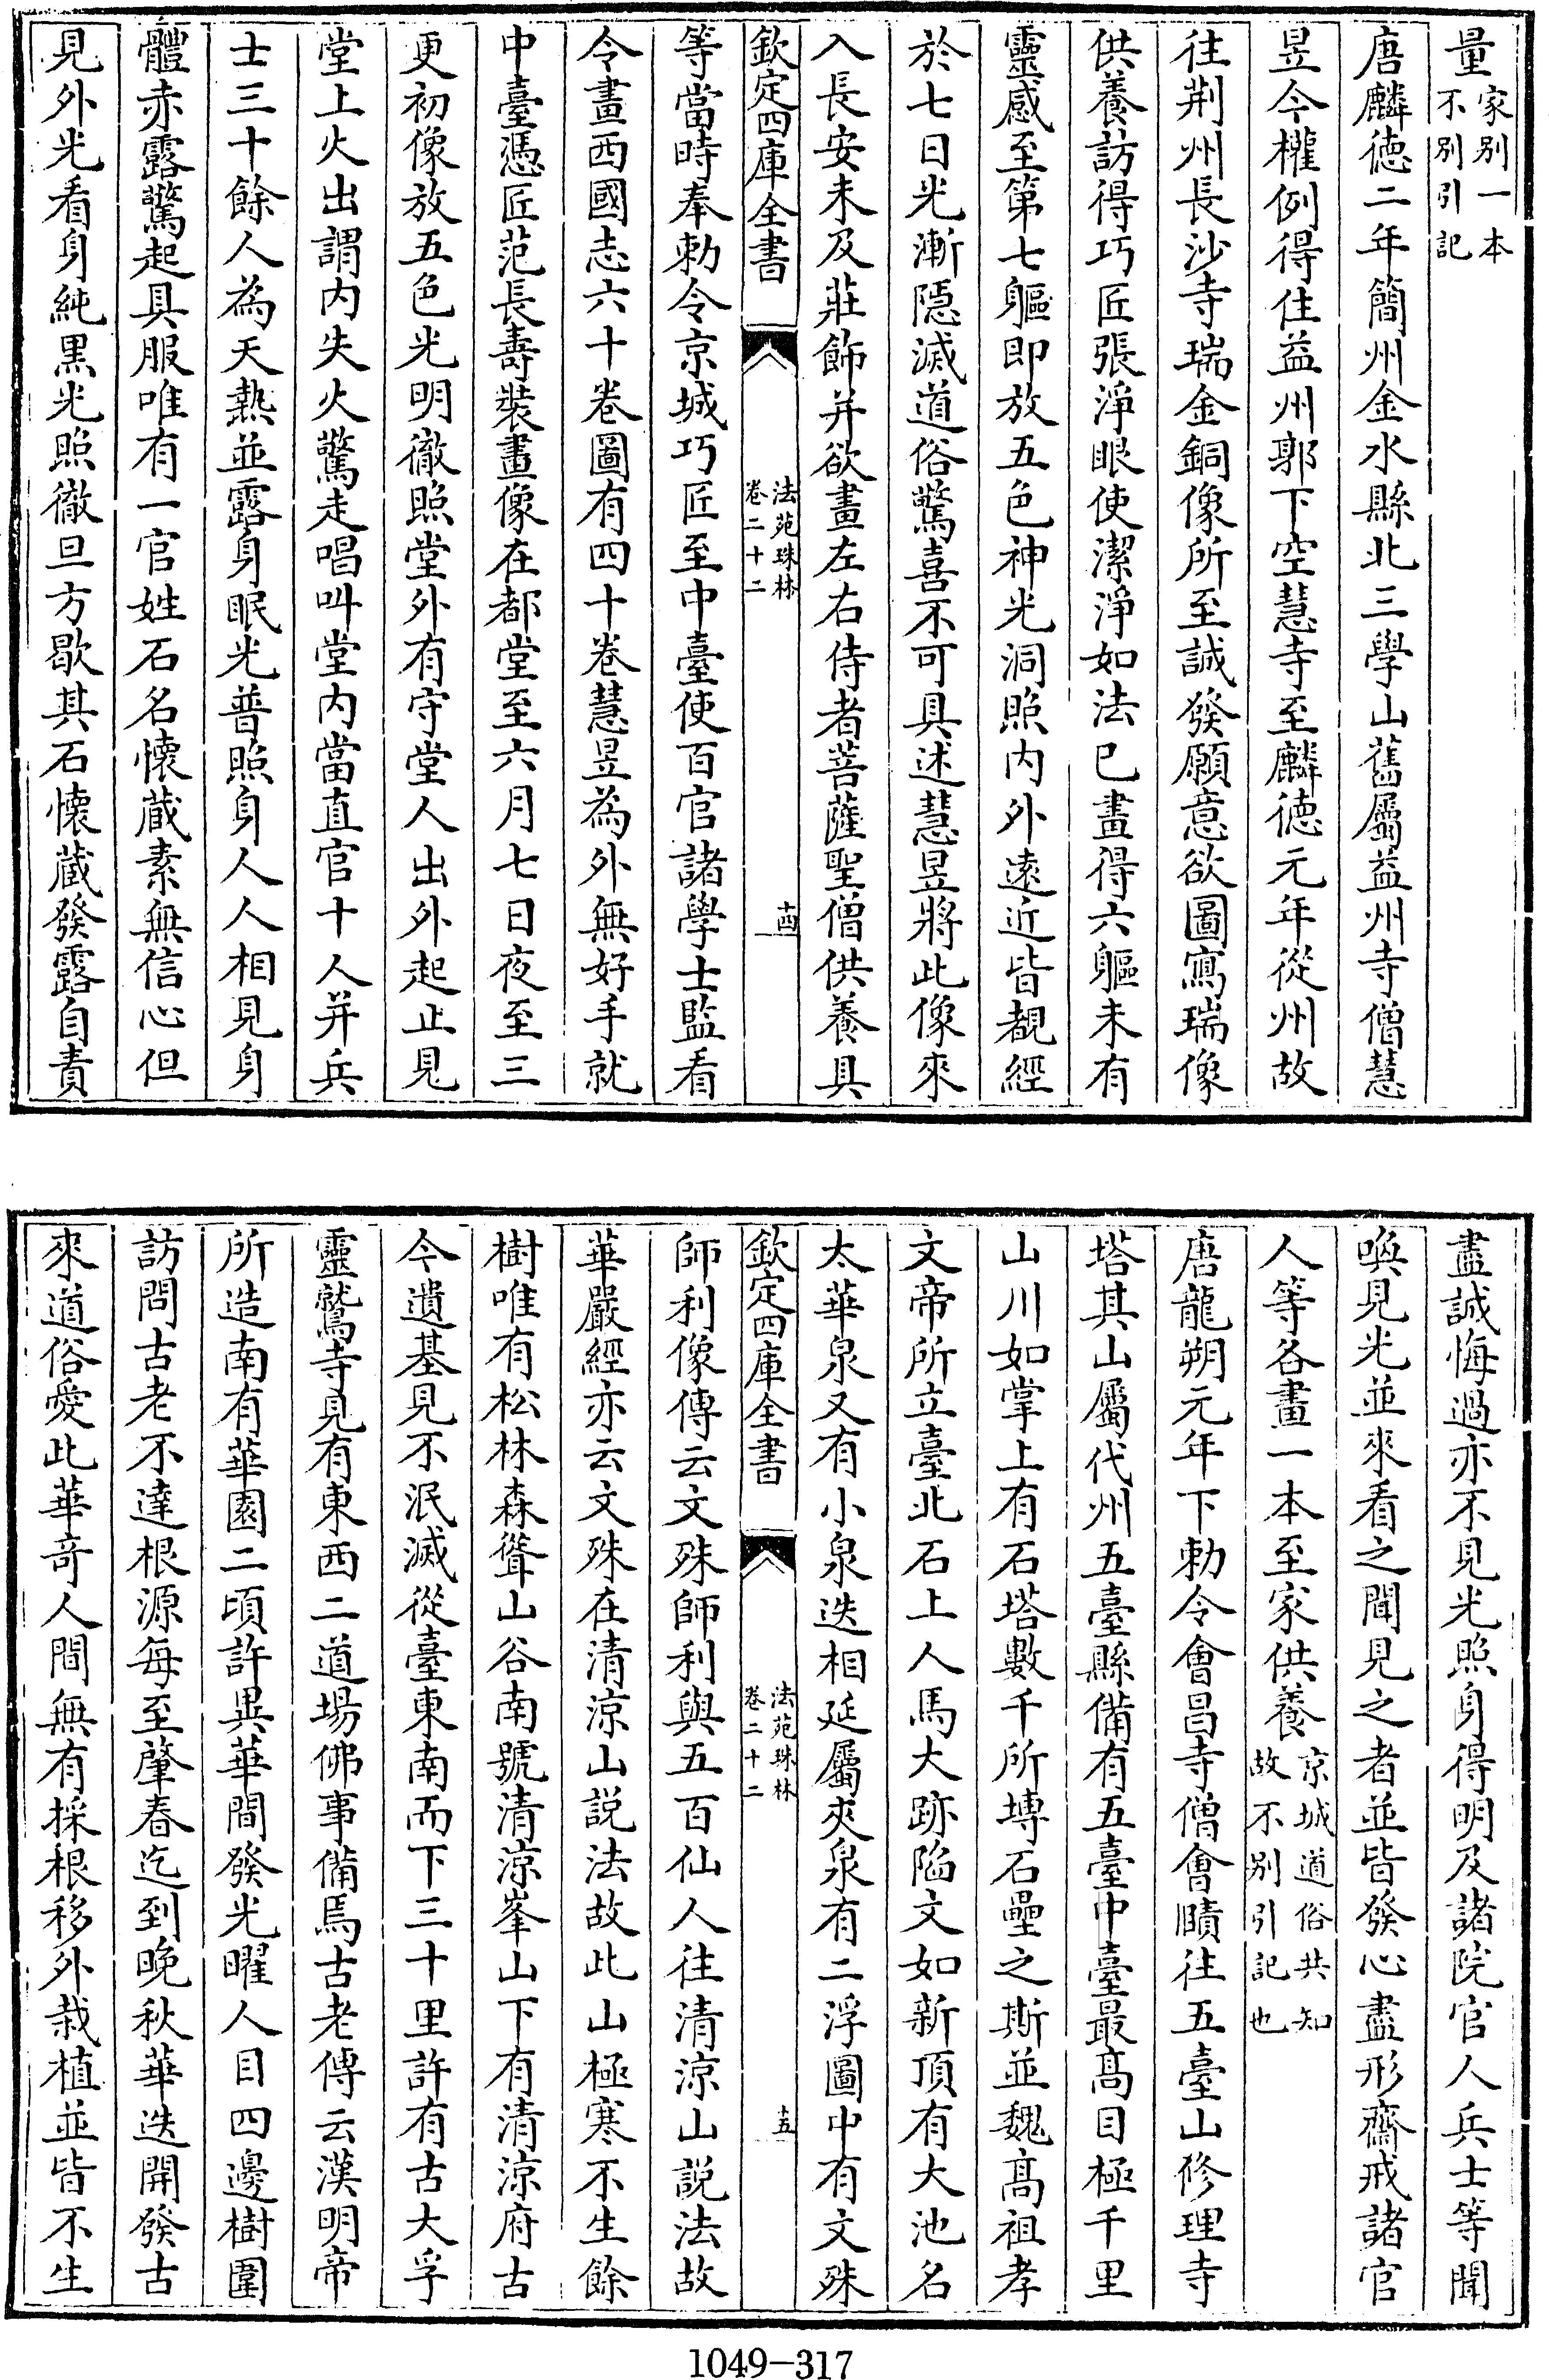 量家别一本不别引記
唐麟德二年簡州金水縣北三學山舊屬益州寺僧慧
昱今權例得住益州郭下空慧寺至麟徳元年從州故
往荆州長沙寺瑞金銅像所至誠發願意欲圖寫瑞像
供養訪得巧匠張淨眼使潔淨如法已畫得六軀未有
靈感至第七軀即放五色神光洞照内外遠近皆覩經
於七日光漸隱滅道俗驚喜不可具述慧昱將此像來
入長安未及莊飾并欲畫左右侍者菩薩聖僧供養具
欽定四庫全書
法苑珠林
卷二十二
十四
等當時奉勅令京城巧匠至中臺使百官諸學士監看
令畫西國志六十卷圖有四十卷慧昱為外無好手就
中臺憑匠范長壽裝畫像在都堂至六月七日夜至三
更初像放五色光明徹照堂外有守堂人出外起止見
堂上火出謂内失火驚走唱叫堂内當直官十人并兵
士三十餘人為天熱並露身眠光普照身人人相見身
體赤露驚起具服唯有一官姓石名懐藏素無信心但
見外光看身純黒光照徹旦方歇其石懐蔵發露自責
盡誠悔過亦不見光照身得明及諸院官人兵士等聞
喚見光並來看之聞見之者並皆發心盡形齋戒諸官
人等各畫一本至家供養京城道俗共知故不别引記也
唐龍朔元年下勅令會昌寺僧會賾往五臺山修理寺
塔其山屬代州五臺縣備有五臺中臺最髙目極千里
山川如掌上有石塔數千所塼石壘之斯並魏髙祖孝
文帝所立臺北石上人馬大跡陷文如新頂有大池名
太華泉又有小泉迭相延屬夾泉有二浮圖中有文殊
欽定四庫全書
法苑珠林
卷二十二
十五
師利像傳云文殊師利與五百仙人往清涼山説法故
華嚴經亦云文殊在清涼山説法故此山極寒不生餘
樹唯有松林森聳山谷南號清涼峯山下有清涼府古
今遺基見不泯滅從臺東南而下三十里許有古大孚
靈鷲寺見有東西二道場佛事備焉古老傳云漢明帝
所造南有華園二頃許異華間發光曜人目四邊樹圍
訪問古老不達根源每至肇春迄到晚秋華迭開發古
來道俗愛此華竒人間無有採根移外栽植並皆不生
1049-317